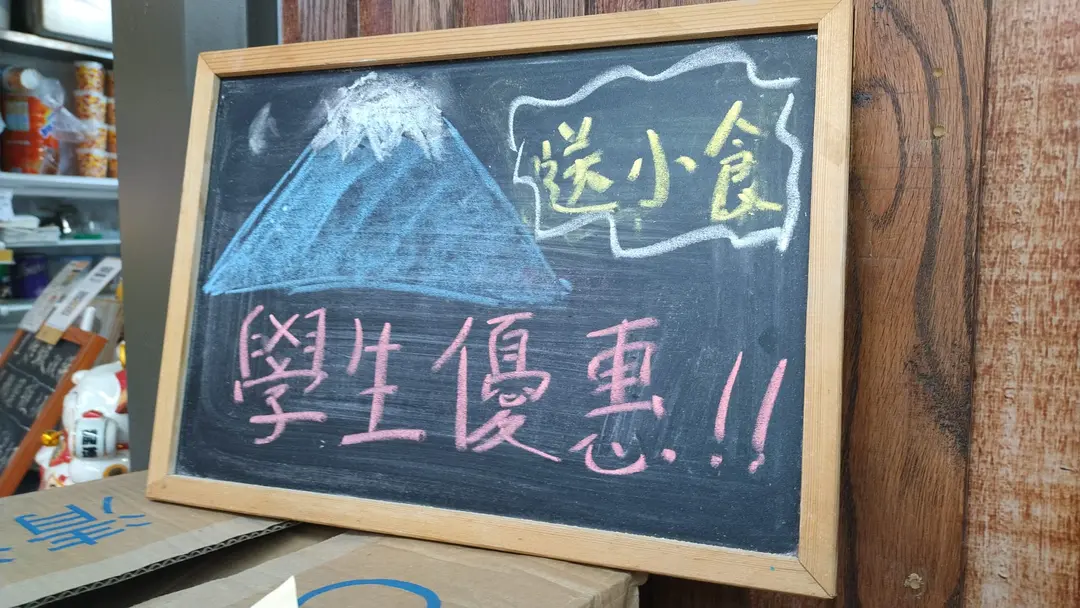 送小食
學生優惠!!
清